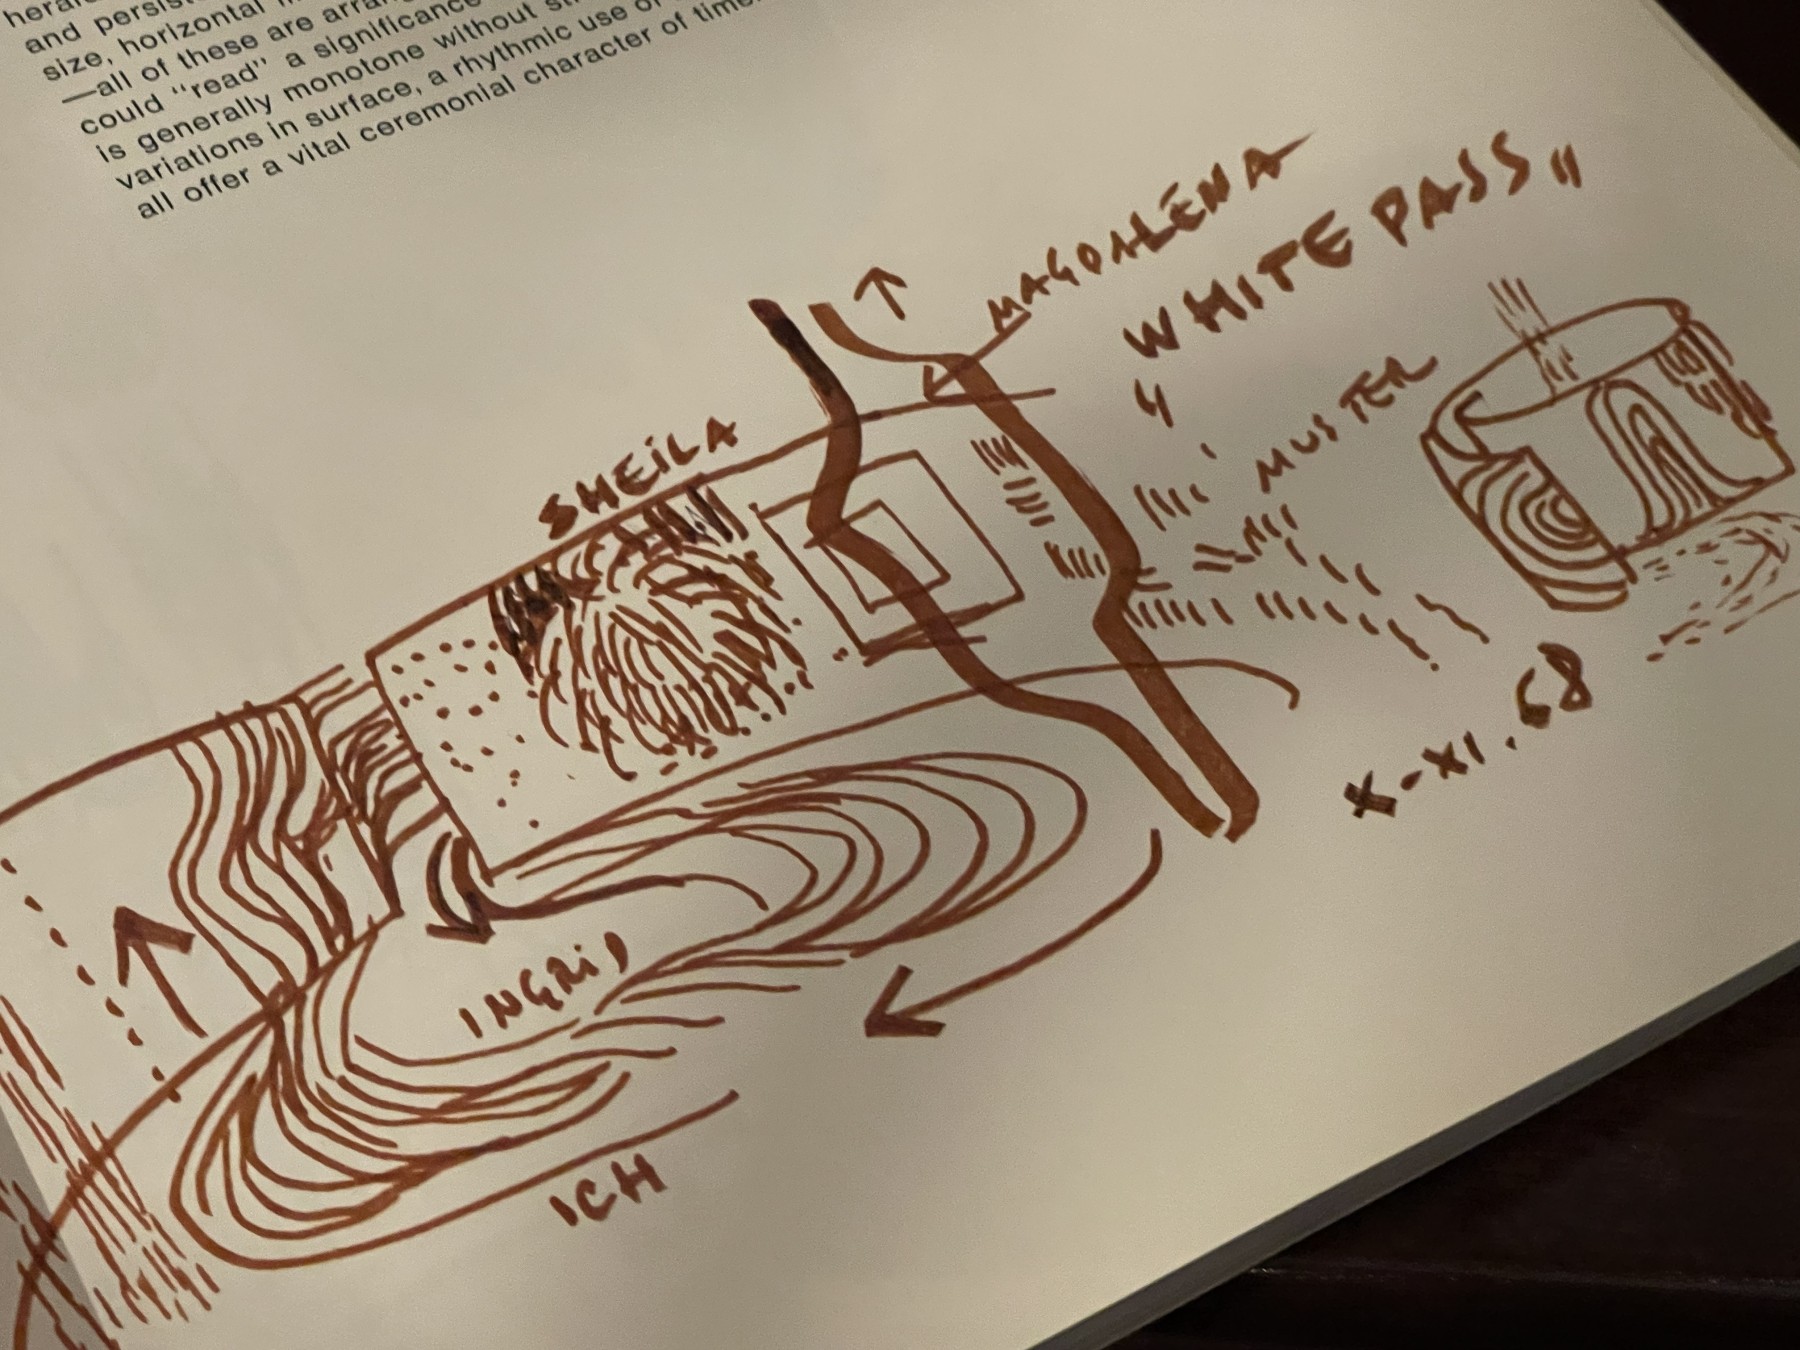 and persis
size, horizontal
—all of these are arran
could "read" a significance
is generally monotone without
variations in surface, a rhythmic use of
all offer a vital ceremonial character of time.
MAGDALENA
"WHITE PASS"
MUSTER
SHEILA
X-XI.68
INGRID
ICH